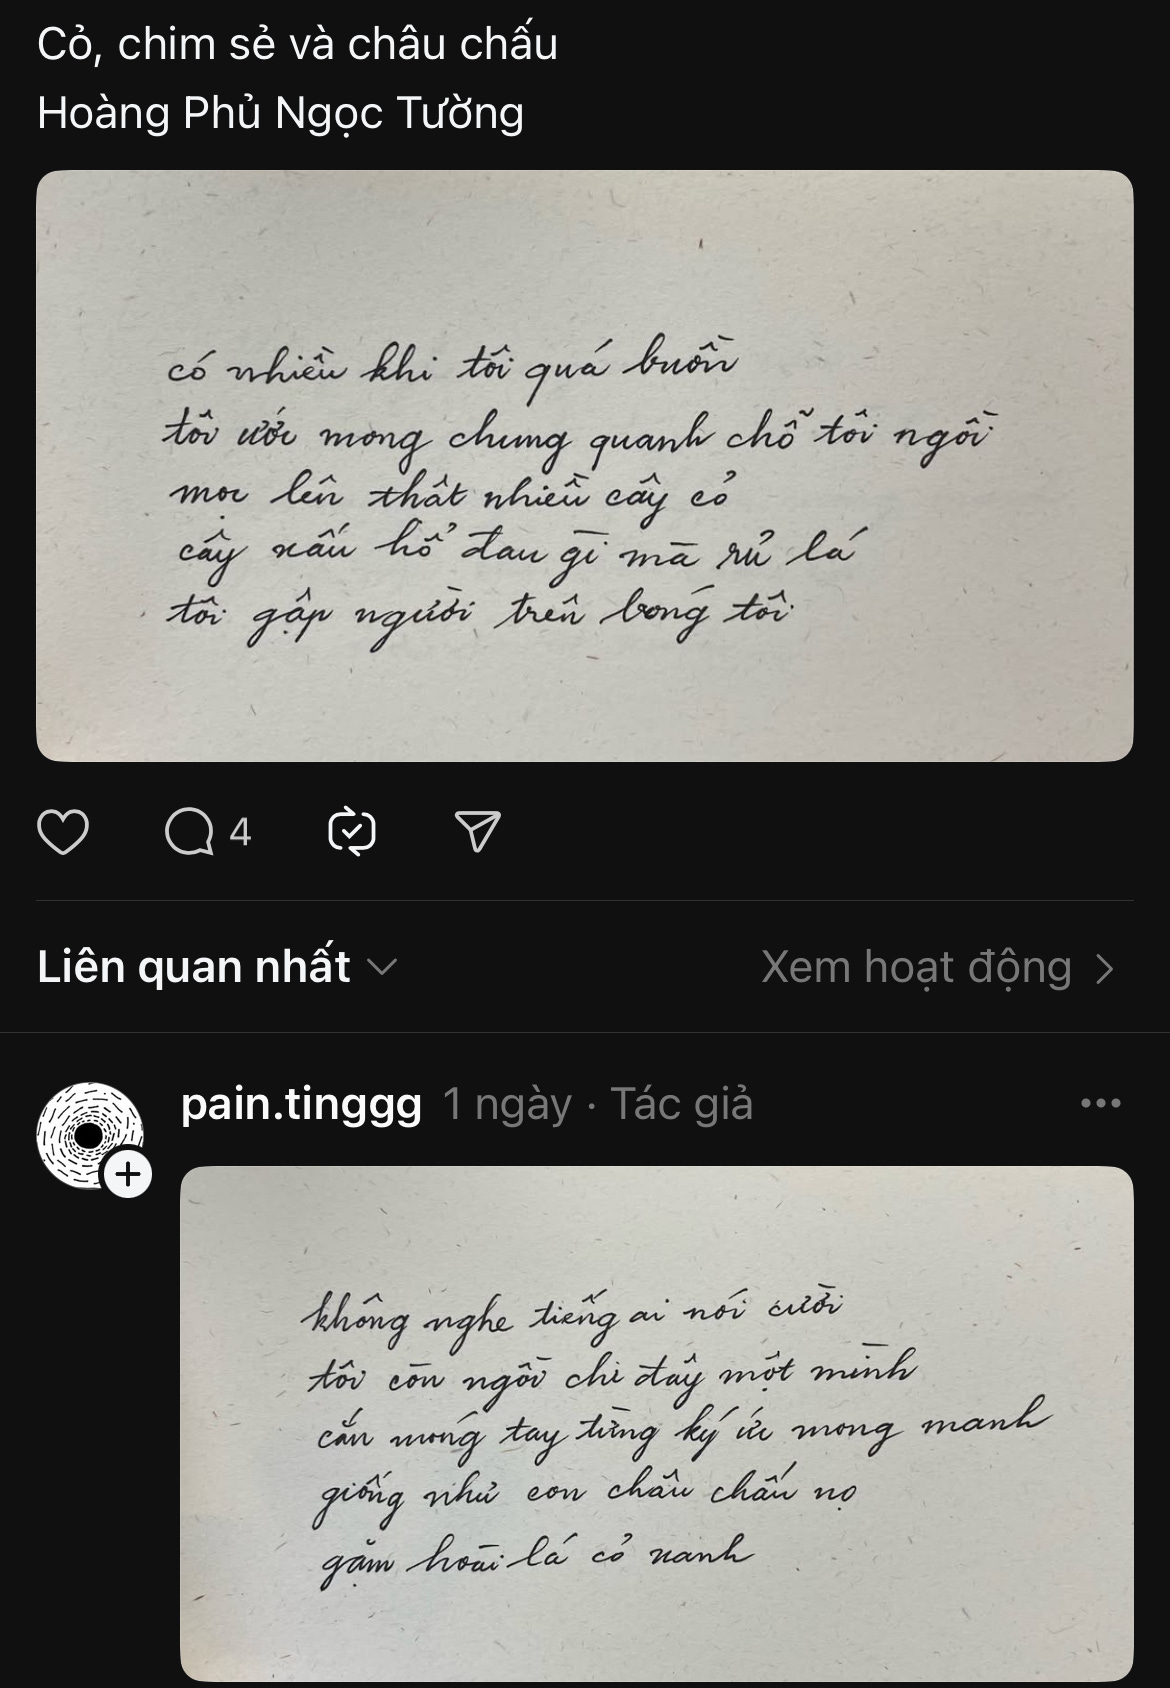 Cỏ, chim sẻ và châu chấu
Hoàng Phủ Ngọc Tường
có nhiều khi tôi quá buồn
tôi ước mong chung quanh chỗ tôi ngồi
mọc lên thật nhiều cây cỏ
cây xấu hổ đau gì mà rủ lá
tôi gập người trên bóng tôi
4
Liên quan nhất
Xem hoạt động
pain.tinggg 1 ngày · Tác giả
không nghe tiếng ai nói cười
tôi còn ngồi chi đây một mình
cắn móng tay từng ký ức mong manh
giống như con châu chấu nọ
gặm hoài lá cỏ xanh